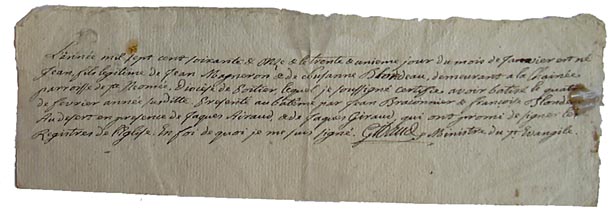 L'année mil sept cent soixante & onze & le trente & unieme jour du mois de Janvier est né
Jean, fils légitime de Jean Magneron & de Susanne Blondeau, demeurant a la Chainée
parroisse de Diocése de Poitier, lequel je soussigné certifie avoir batisé le quatre
de fevrier année susditte. Presenté au batême par Jean & François Blondeau
Audebert en presence de Jaques Airaud, & de Jaques Giraud, qui ont promi de signer les
Registres de l'Eglise. En foi de quoi je me suis signé. Gibaud Ministre du St Evangile.